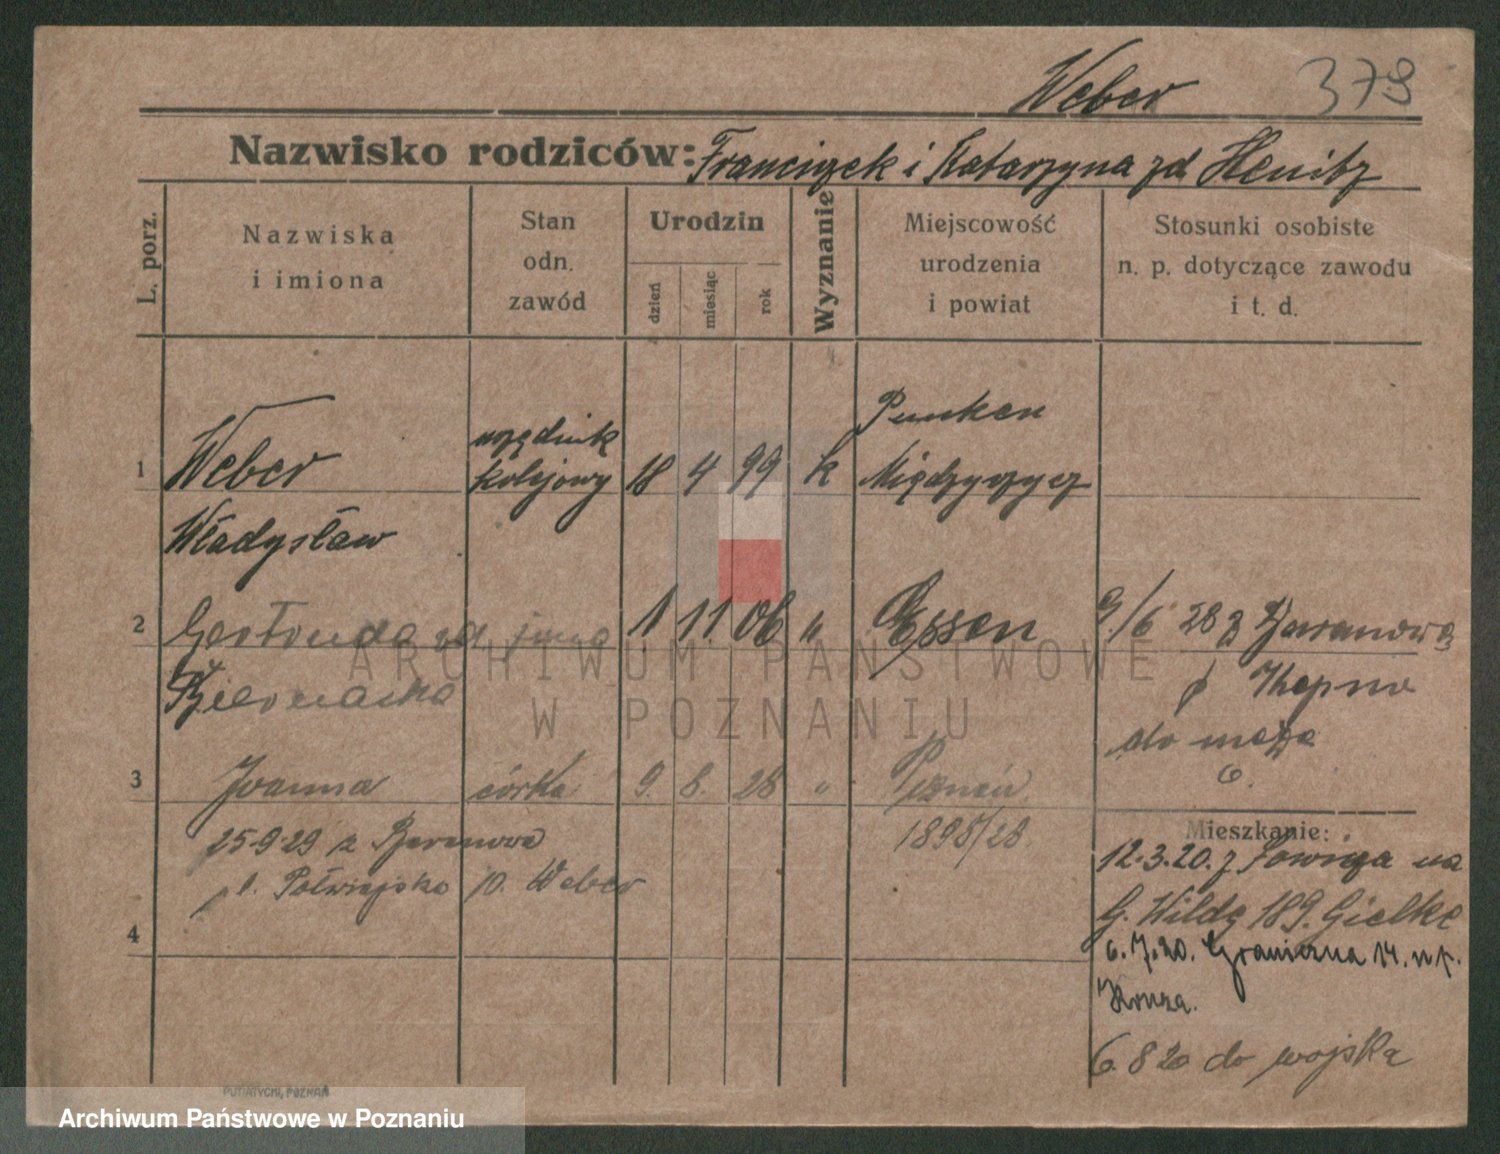 Weber 379
Nazwisko rodziców: Franciszek i Katarzyna zd Henitz
L. porz.
Nazwiska
i imiona
Stan
odn.
zawód
Urodzin
dzień
miesiąc
rok
Wyznanie
Miejscowość
urodzenia
i powiat
Stosunki osobiste
n. p. dotyczące zawodu
i t. d.
1 Weber urzędnik kolejowy 18 4 99 k Punken Międzyrzycz
Władysław
2 Gertruda zd żona 1 11 06 " Essen 9/6 28 z Baranowa
Biernacka
p Kępno
do męża
3 Joanna córka 9. 6. 28 " Poznań
1898/28.
25.9.29 z Baranowa
pl. Półwiejska 10. Weber
4
Mieszkanie:
12.3.20. z na
G. Wildę 189. Gielke
6.7.20. Graniczna 14. u p.
6.8 20 do wojska
PUTIATYCKI, POZNAŃ
ARCHIWUM PAŃSTWOWE
W POZNANIU
Archiwum Państwowe w Poznaniu